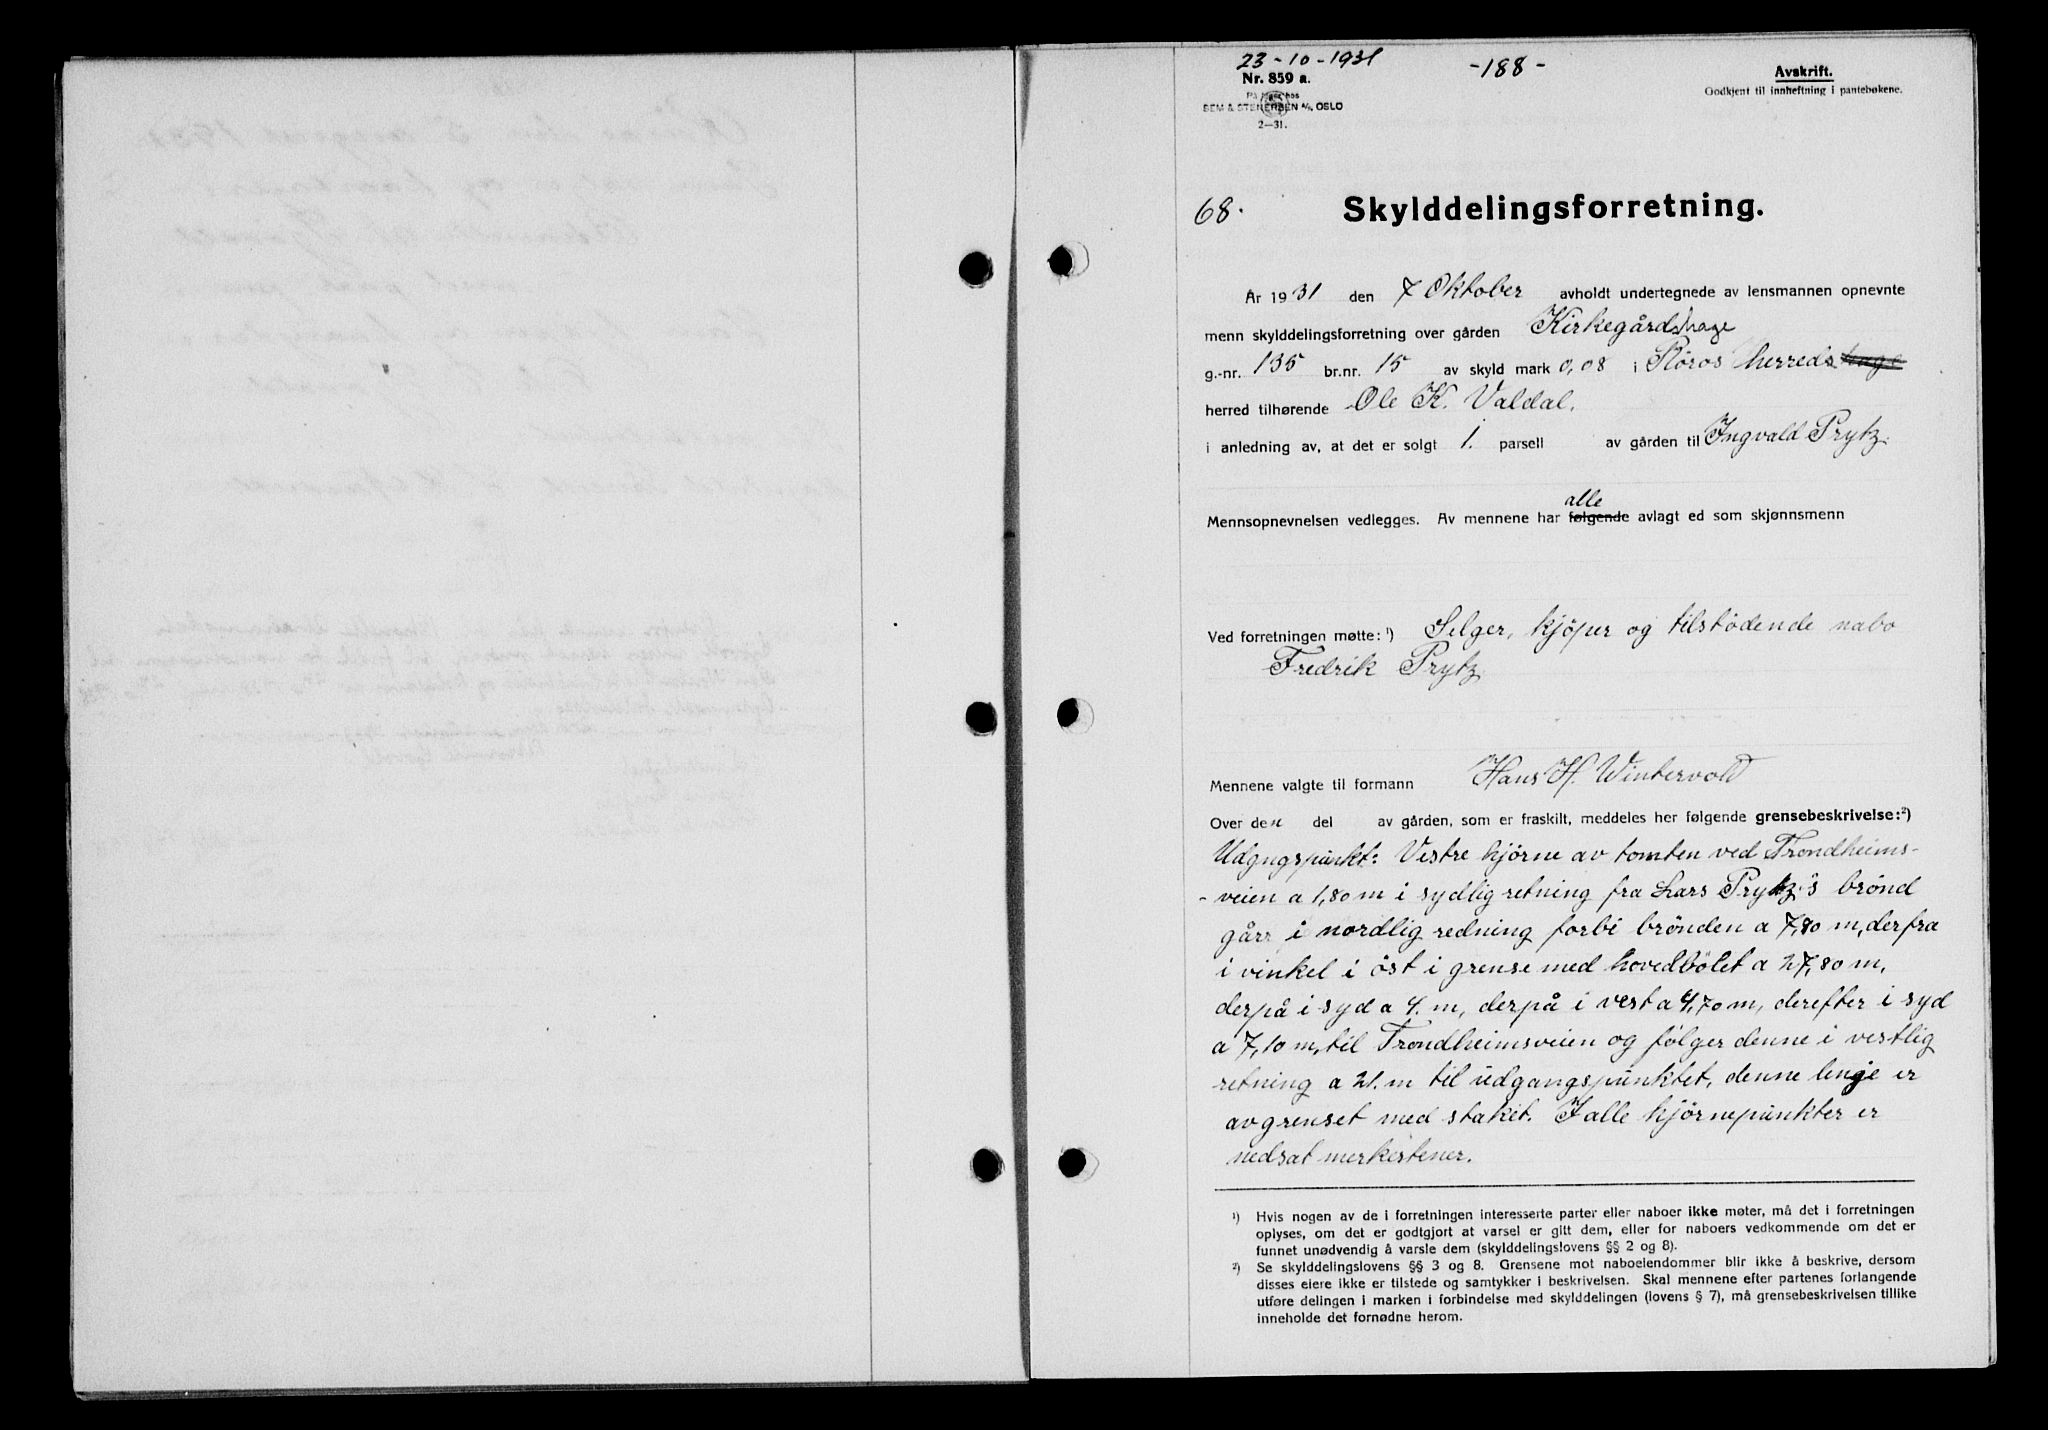 23-10-1931
-188-
Nr. 859 a.
Avskrift.
Godkjent til innheftning i pantebøkene.
SEM & STENERSEN A/S, OSLO
2—31.
68.
Skylddelingsforretning.
År 1931 den 7 Oktober avholdt undertegnede av lensmannen opnevnte
menn skylddelingsforretning over gården Kirkegårdshage
g.-nr. 135 br.nr. 15 av skyld mark 0,08 i Röros herreds
herred tilhørende Ole K. Valdal.
i anledning av, at det er solgt 1. parsell av gården til Ingvald Prytz.
alle
Mennsopnevnelsen vedlegges. Av mennene har følgende avlagt ed som skjønnsmenn
Ved forretningen møtte: ¹) Selger, kjöper og tilstödende nabo
Fredrik Prytz
Mennene valgte til formann Hans H. Wintervold
Over den del av gården, som er fraskilt, meddeles her følgende grensebeskrivelse: ²)
Udgngspunkt: Vestre hjörne av tomten ved Trondheims-
-veien a 1,80 m i sydlig retning fra Lars Prytz's brönd
går i nordlig redning forbi brönden a 7,80 m, derfra
i vinkel i öst i grense med hovedbölet a 27,80 m,
derpå i syd a 4. m, derpå i vest a 4,70 m, derefter i syd
a 7,10 m, til Trondheimsveien og fölger denne i vestlig
retning a 21. m til udgangspunktet, denne linje er
avgrenset med staket. I alle hjörnepunkter er
nedsat merkestener.
¹) Hvis nogen av de i forretningen interesserte parter eller naboer ikke møter, må det i forretningen
oplyses, om det er godtgjort at varsel er gitt dem, eller for naboers vedkommende om det er
funnet unødvendig å varsle dem (skylddelingslovens §§ 2 og 8).
²) Se skylddelingslovens §§ 3 og 8. Grensene mot naboeiendommer blir ikke å beskrive, dersom
disses eiere ikke er tilstede og samtykker i beskrivelsen. Skal mennene efter partenes forlangende
utføre delingen i marken i forbindelse med skylddelingen (lovens § 7), må grensebeskrivelsen tillike
inneholde det fornødne herom.